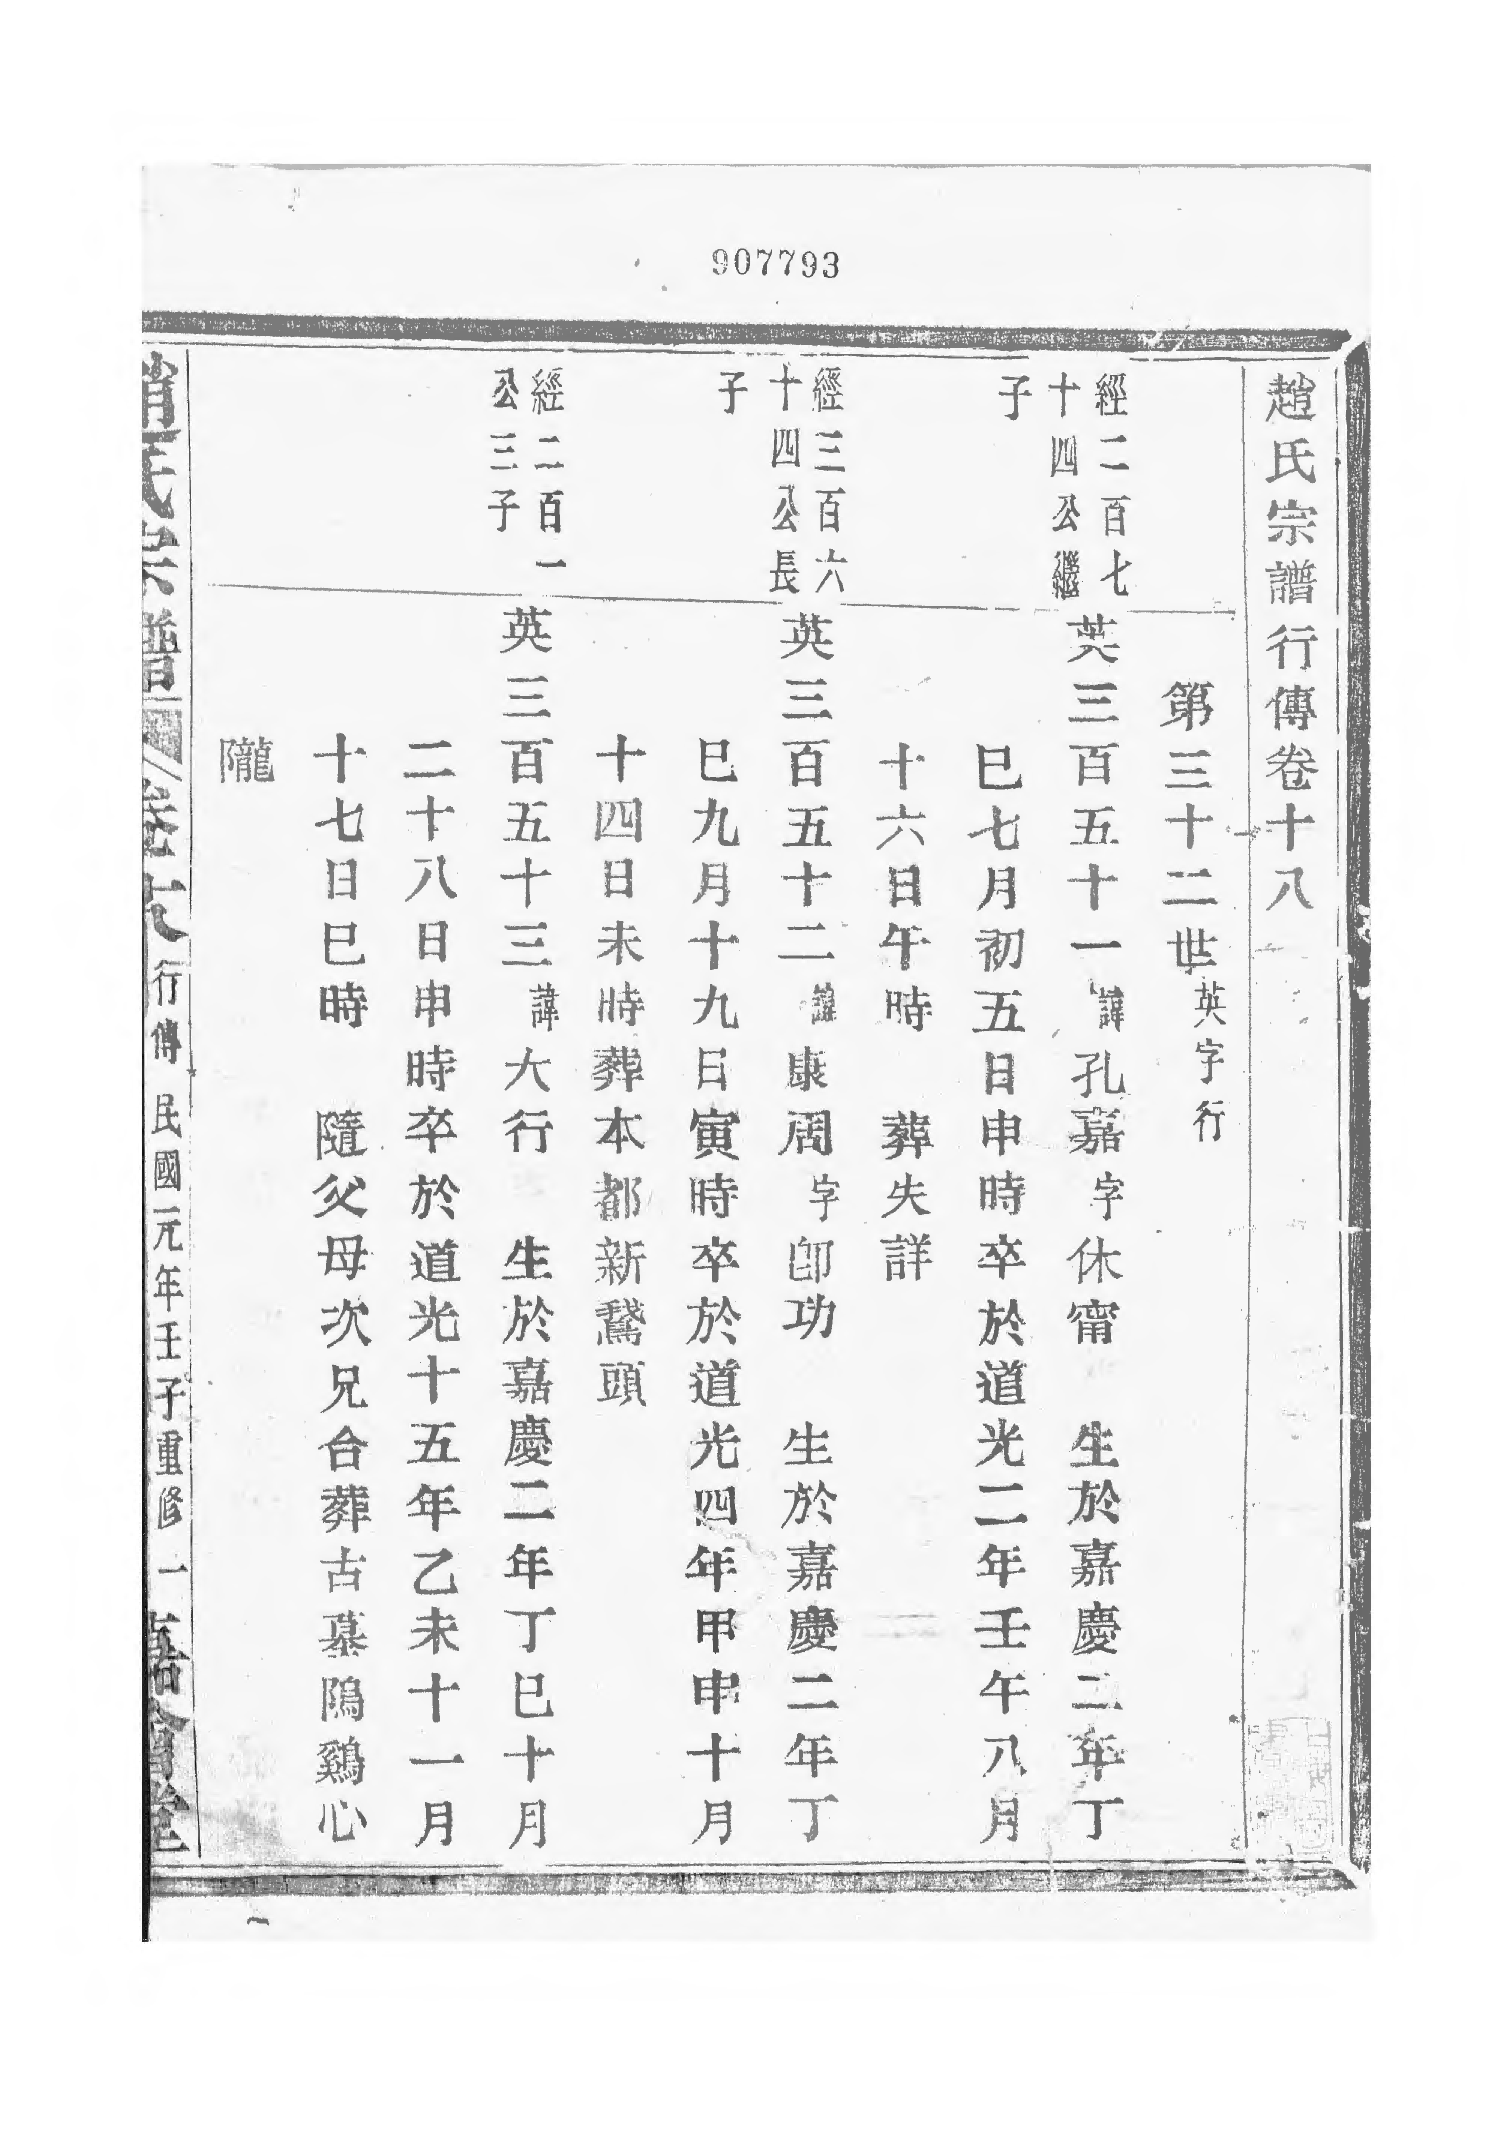 907793
趙氏宗譜行傳卷十八
第三十二世英字行
經二百七
十四公繼
子
英三百五十一諱孔嘉字休甯　生於嘉慶二年丁
巳七月初五日申時卒於道光二年壬午八月
十六日午時　葬失詳
經三百六
十四公長
子
英三百五十二諱康周字卽功　生於嘉慶二年丁
巳九月十九日寅時卒於道光四年甲申十月
十四日未時葬本都新鵞頭
經二百一
公三子
英三百五十三諱大行　生於嘉慶二年丁巳十月
二十八日申時卒於道光十五年乙未十一月
十七日巳時　隨父母次兄合葬古墓隝鷄心
隴
趙氏宗譜　卷十八　行傳　民國元年壬子重修　一　嘉會堂